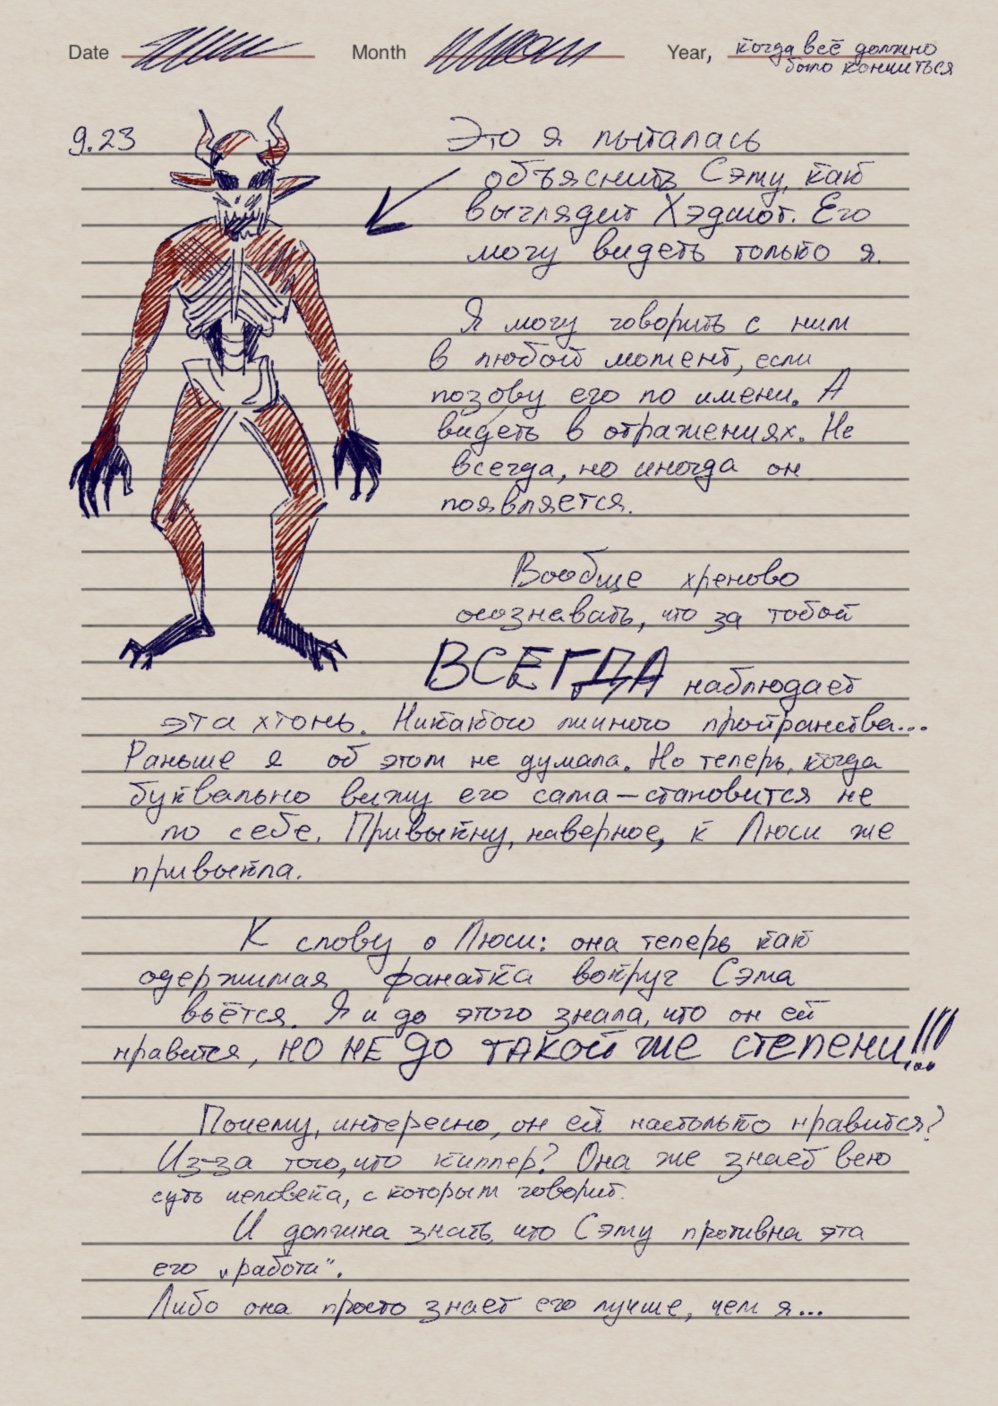 Date Month Year, когда всё должно
было кончиться
9.23
Это я пыталась
объяснить Сэму, как
выглядит Хэдшот. Его
могу видеть только я.
Я могу говорить с ним
в любой момент, если
позову его по имени. А
видеть в отражениях. Не
всегда, но иногда он
появляется.
Вообще хреново
осознавать, что за тобой
ВСЕГДА наблюдает
эта хтонь. Никакого личного пространства...
Раньше я об этом не думала. Но теперь, когда
буквально вижу его сама — становится не
по себе. Привыкну, наверное, к Люси же
привыкла.
К слову о Люси: она теперь как
одержимая фанатка вокруг Сэма
вьётся. Я и до этого знала, что он ей
нравится, НО НЕ ДО ТАКОЙ ЖЕ СТЕПЕНИ!!!...
Почему, интересно, он ей настолько нравится?
Из-за того, что киллер? Она же знает всю
суть человека, с которым говорит.
И должна знать, что Сэму противна эта
его „работа“.
Либо она просто знает его лучше, чем я...